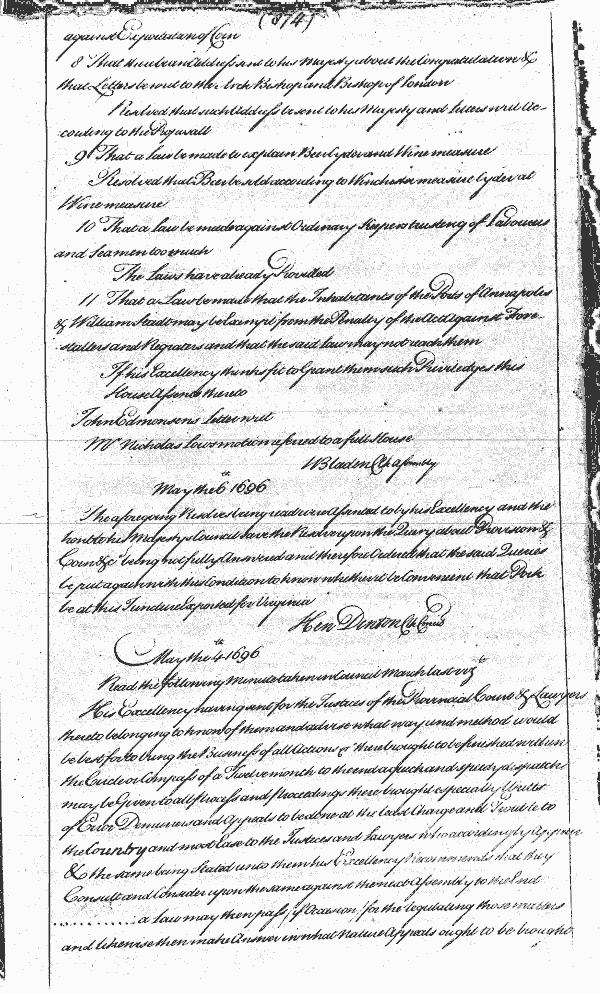 (874)
against Exportation of Corn
8 That there be an Address sent to his Majesty about the Congratulation &
that Letters be writ to the Arch Bishop and Bishop of London
Resolved that such Address be sent to his Majesty and letters writ Ac-
cording to the Proposall
9 That a Law be made to explain Beer Cyder and Wine measure
Resolved that Beer be sold according to Winchester measure Cyder at
Wine measure
10 That a Law be made against Ordinary Keepers trusting of Labourers
and Seamen too much
The Laws have already Provided
11 That a Law be made that the Inhabitants of the Ports of Annapolis
& William Stadt may be Exempt from the Penalty of the Act against Fore-
stallers and Regrators and that the said Law may not reach them
If his Excellency thinks fit to Grant them such Priviledges this
House Assents thereto
John Edmonson's Letter writ
Mr Nicholas Lows motion referred to a full House
W Bladen Clk Assembly
May the 6th 1696
The aforegoing Resolves being read were Assented to by his Excellency and the
honble his Majestys Council save the Resolve upon the Query about Provision &
Corn &c being not fully Answered and therefore Ordered that the said Queries
be put again with this Condition to know whether it be Convenient that Pork
be at this Juncture Exported for Virginia
Hen Denton Clk Council
May the 4th 1696
Read the following Minute taken in Council March last vizt
His Excellency having sent for the Justices of the Provincial Court & Lawyers
thereto belonging to know of them and advise what way and method would
be best for to bring the Business of all Actions there brought to be finished within
the Circle or Compass of a Twelve month to the end a quick and speedy dispatch
may be Given to all Process and Proceedings there brought especially Writts
of Error Demurrers and Appeals to be done at the least Charge and Trouble to
the Country and most Ease to the Justices and Lawyers who accordingly Appear
& the same being Stated unto them his Excellency Recommends that they
Consult and Consider upon the same against the next Assembly to the End
a Law may then pass (if Occasion) for the regulating those matters
and likewise then make Answer in what nature Appeals ought to be brought